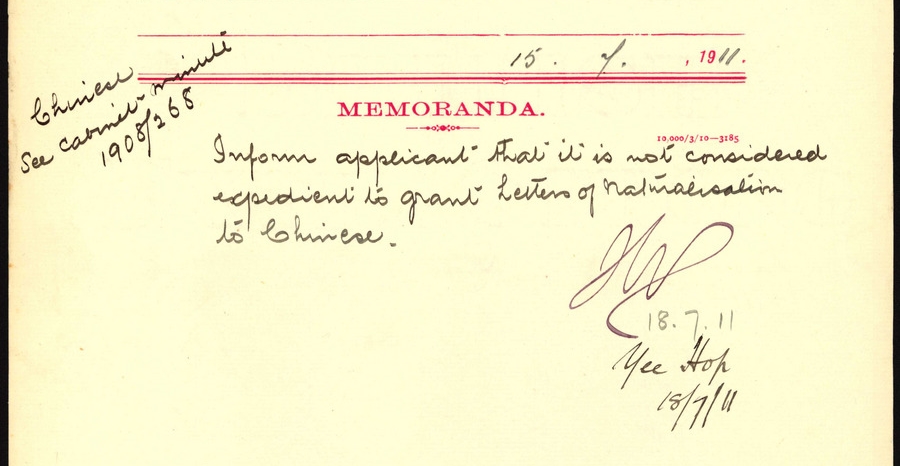 15. 7. , 1911.
Chinese
See cabinet minute
1908/268
MEMORANDA.
10,000/3/10—3185
Inform applicant that it is not considered
expedient to grant Letters of Naturalisation
to Chinese.
18.7.11
Yee Hop
18/7/11